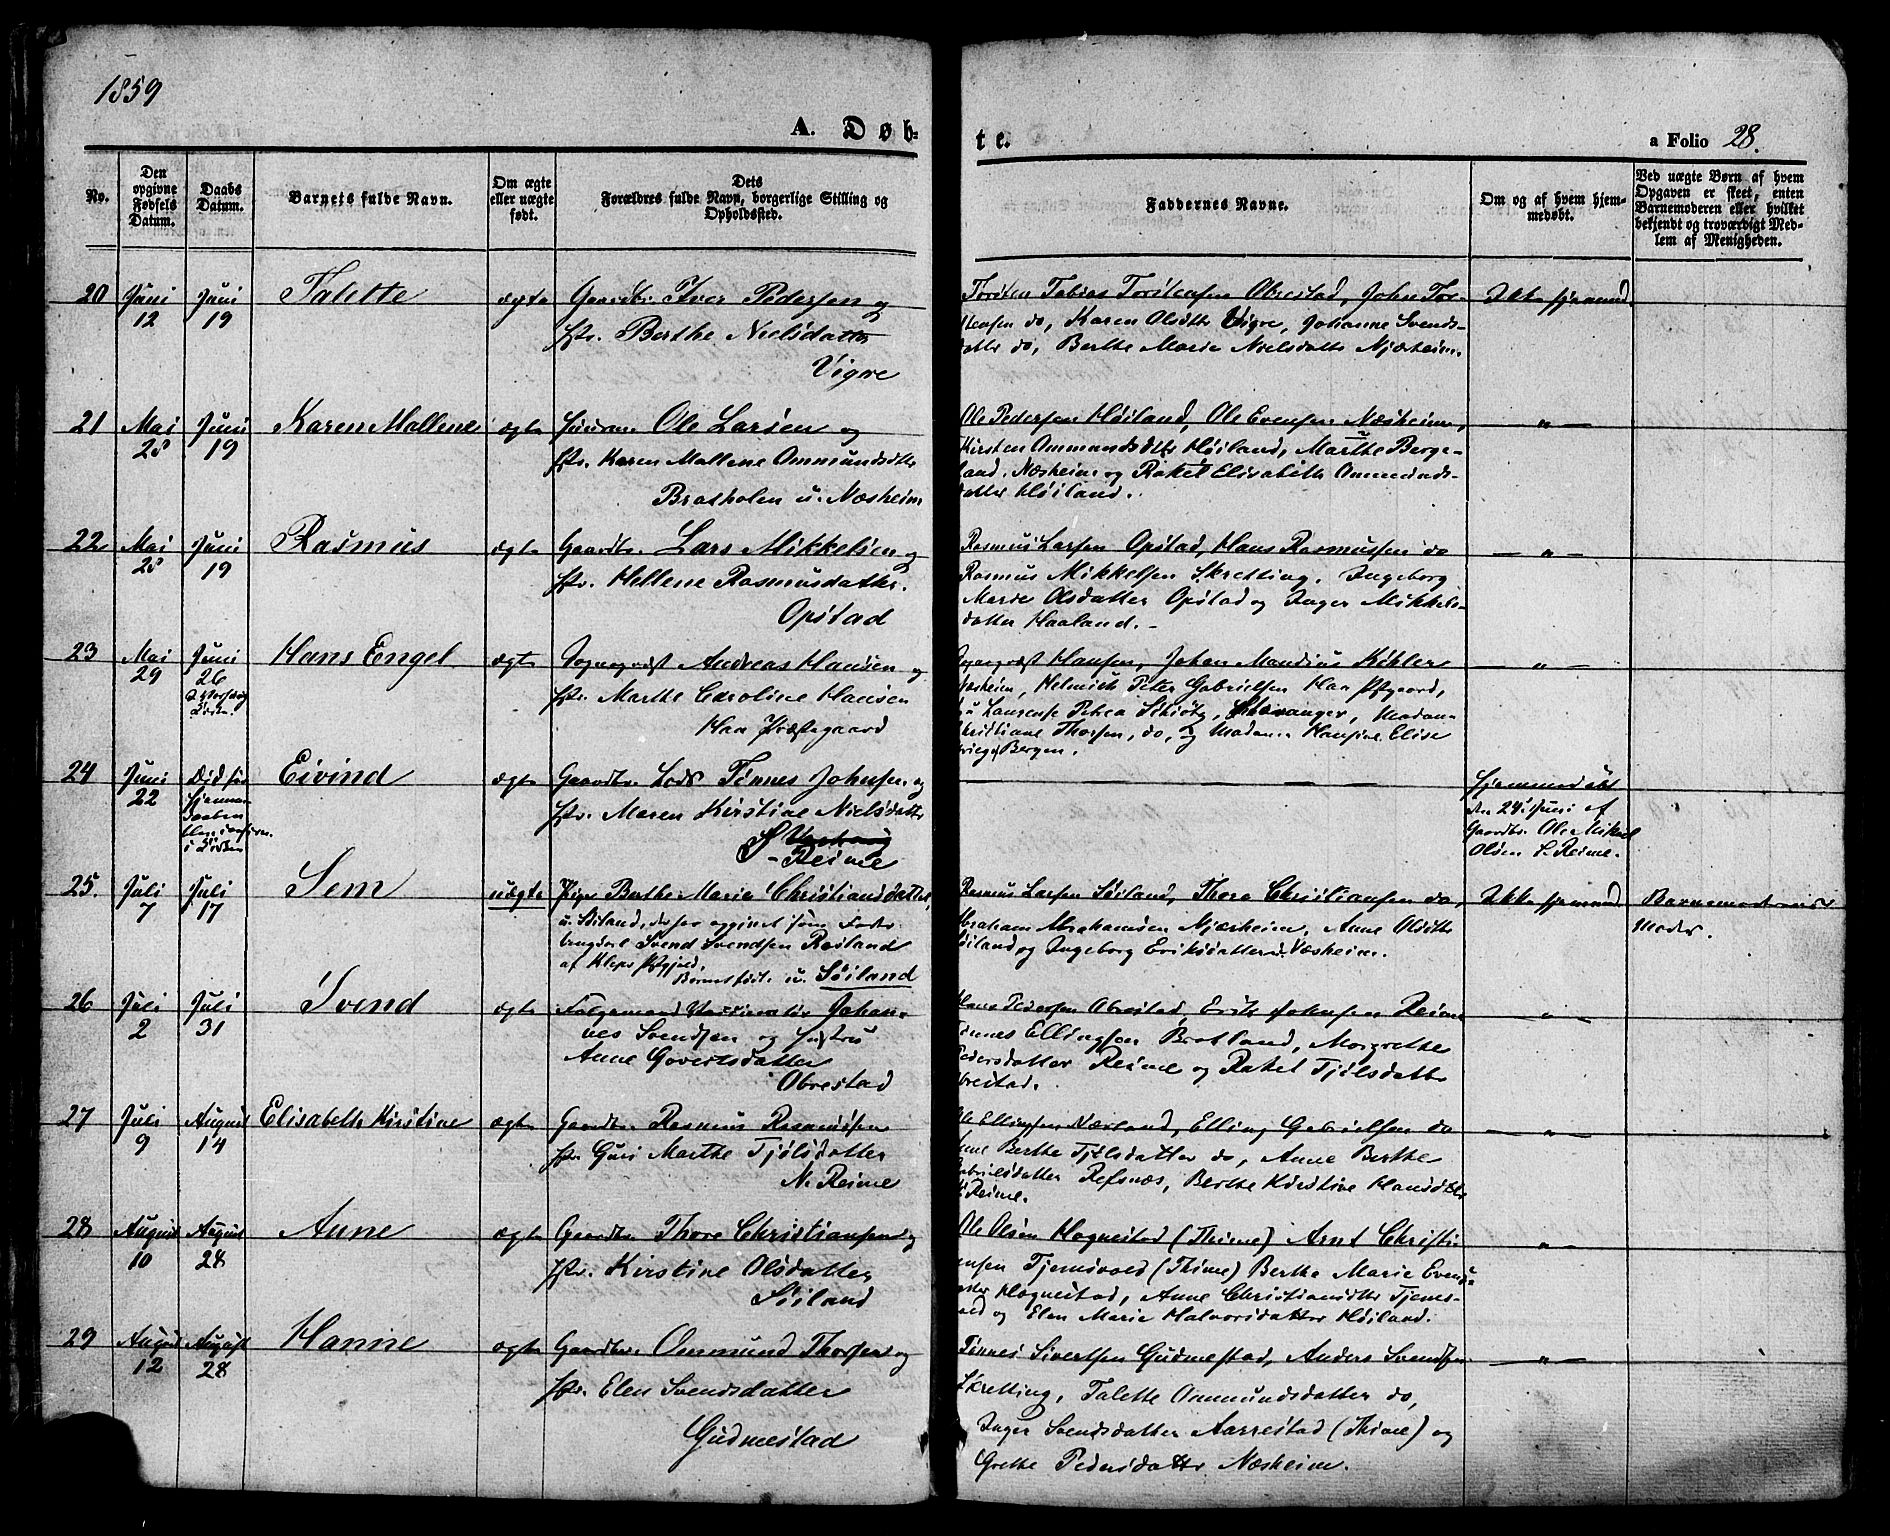 1859
A. Døb-
te.
a Folio 28.
No.
Den opgivne Fødsels Datum.
Daabs Datum.
Barnets fulde Navn.
Om ægte eller uægte født.
Dets Forældres fulde Navn, borgerlige Stilling og Opholdssted.
Faddernes Navne.
Om og af hvem hjemmedøbt.
Ved uægte Børn af hvem Opgaven er skeet, enten Barnemoderen eller hvilket bekjendt og troværdigt Medlem af Menigheden.
20 Juni 12 Juni 19 Talette ægte Gaardbr. Iver Pedersen og
Hstr. Berthe Nielsdatter
Vigre
Torsten Tobias Torstensen Obrestad, John Tor-
stensen do, Karen Olsdttr Vigre, Johanne Svends-
datter do, Berthe Marie Nielsdattr Njærheim.
Ikke hjemmed.
21 Mai 28 Juni 19 Karen Mallene ægte Huusm. Ole Larsen og
Hstr. Karen Mallene Ommundsdttr
Bratholen u. Næsheim
Ole Pedersen Høiland, Ole Evensen Næsheim,
Kirsten Ommundsdttr Høiland, Marthe Berge-
land, Næsheim og Rakel Elisabeth Ommunds-
datter Høiland.
— " —
22 Mai 28 Juni 19 Rasmus ægte Gaardbr. Lars Mikkelsen og
Hstr. Hellene Rasmusdatter.
Opstad
Rasmus Larsen Opstad, Hans Rasmussen do
Rasmus Mikkelsen Skretting, Ingeborg
Marie Olsdatter Opstad og Inger Mikkels-
datter Haaland. -
— " —
23 Mai 29 Juni 26 Hans Engel ægte Sognepræst Andreas Hansen og
Hstr. Marthe Caroline Hansen
Haa Præstegaard
Sognepræst Hansen, Johan Mandius Kihler
Næsheim, Helmich Peter Gabrielsen Haa Pstgaard,
Laurense Petrea Schiøtz, Stavanger, Madam
Christiane Thorsen, do, og Madam Hansine Elise
Bergen.
— " —
24 Juni 22 Død før
i Kirken
Eivind ægte Gaardbr. Lods Tønnes Johnsen og
Hstr. Maren Kirstine Nielsdatter
S
- Reime
— —
Hjemmedøbt
den 24 Juni af
Gaardbr. Ole Mikal
Olsen S. Reime.
25. Juli 7 Juli 17 Sem uægte Pige Berthe Marie Christiansdatter,
u. Søiland, der har opgivet som Fader
Svend Svendsen Røiland
af Klepp Pstgjeld,
u. Søiland
Rasmus Larsen Søiland, Thore Christiansen do,
Abraham Abrahamsen Njærheim, Anne Olsdttr
Søiland og Ingeborg Eriksdatter Næsheim.
Ikke hjemmed.
Barnemoderens
Moder.
26 Juli 2 Juli 31 Svend ægte Vaccinatør Johan-
nes Svendsen og Hustru
Anne Govertsdatter
Obrestad
Hans Pedersen Obrestad, Erik Johnsen Reime
Tønnes Ellingsen Brotland, Margrethe
Pedersdatter Reime og Rakel Tjølsdattr
Obrestad.
— " —
27 Juli 9 August 14 Elisabeth Kirstine ægte Gaardbr. Rasmus Rasmussen
Hstr. Guri Marthe Tjølsdatter
N. Reime
Ole Ellingsen Nærland, Elling Gabrielsen do
Anne Berthe Tjølsdatter do, Anne Berthe
Gabrielsdatter Refsnæs, Berthe Kirstine Hansdttr
N. Reime.
— " —
28 August 10 August 28 Anne ægte Gaardbr. Thore Christiansen og
Hstr. Kirstine Olsdatter
Søiland
Ole Olsen Hognestad (Thime) Arnt Christi-
ensen Tjemsvold (Thime) Berthe Marie Evens-
datter Hognestad, Anne Christiansdttr Tjems-
vold og Elen Marie Halvorsdatter Høiland.
— " —
29 August 12 August 28 Hanne ægte Gaardbr. Ommund Thorsen og
Hstr. Elen Svendsdatter
Gudmestad
Tønnes Sivertsen Gudmestad, Anders Svendsen
Skretting, Talette Ommundsdatter do,
Inger Svendsdatter Aarrestad (Thime) og
Grethe Pedersdatter Næsheim.
— " —